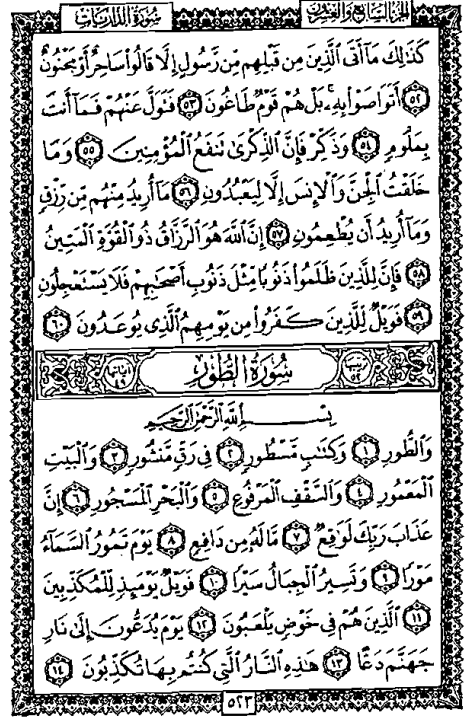 الجزء السابع والعشرون سورة الذاريات
كَذَٰلِكَ مَآ أَتَى ٱلَّذِينَ مِن قَبْلِهِم مِّن رَّسُولٍ إِلَّا قَالُوا۟ سَاحِرٌ أَوْ مَجْنُونٌ
٥٢ أَتَوَاصَوْا۟ بِهِۦ ۚ بَلْ هُمْ قَوْمٌ طَاغُونَ ٥٣ فَتَوَلَّ عَنْهُمْ فَمَآ أَنتَ
بِمَلُومٍ ٥٤ وَذَكِّرْ فَإِنَّ ٱلذِّكْرَىٰ تَنفَعُ ٱلْمُؤْمِنِينَ ٥٥ وَمَا
خَلَقْتُ ٱلْجِنَّ وَٱلْإِنسَ إِلَّا لِيَعْبُدُونِ ٥٦ مَآ أُرِيدُ مِنْهُم مِّن رِّزْقٍ
وَمَآ أُرِيدُ أَن يُطْعِمُونِ ٥٧ إِنَّ ٱللَّهَ هُوَ ٱلرَّزَّاقُ ذُو ٱلْقُوَّةِ ٱلْمَتِينُ
٥٨ فَإِنَّ لِلَّذِينَ ظَلَمُوا۟ ذَنُوبًا مِّثْلَ ذَنُوبِ أَصْحَٰبِهِمْ فَلَا يَسْتَعْجِلُونِ
٥٩ فَوَيْلٌ لِّلَّذِينَ كَفَرُوا۟ مِن يَوْمِهِمُ ٱلَّذِى يُوعَدُونَ ٦٠
ترتيبها ٥٢ سُورَةُ الطُّورِ آياتها ٤٩
بِسْمِ ٱللَّهِ ٱلرَّحْمَٰنِ ٱلرَّحِيمِ
وَٱلطُّورِ ١ وَكِتَٰبٍ مَّسْطُورٍ ٢ فِى رَقٍّ مَّنشُورٍ ٣ وَٱلْبَيْتِ
ٱلْمَعْمُورِ ٤ وَٱلسَّقْفِ ٱلْمَرْفُوعِ ٥ وَٱلْبَحْرِ ٱلْمَسْجُورِ ٦ إِنَّ
عَذَابَ رَبِّكَ لَوَٰقِعٌ ٧ مَّا لَهُۥ مِن دَافِعٍ ٨ يَوْمَ تَمُورُ ٱلسَّمَآءُ
مَوْرًا ٩ وَتَسِيرُ ٱلْجِبَالُ سَيْرًا ١٠ فَوَيْلٌ يَوْمَئِذٍ لِّلْمُكَذِّبِينَ
١١ ٱلَّذِينَ هُمْ فِى خَوْضٍ يَلْعَبُونَ ١٢ يَوْمَ يُدَعُّونَ إِلَىٰ نَارِ
جَهَنَّمَ دَعًّا ١٣ هَٰذِهِ ٱلنَّارُ ٱلَّتِى كُنتُم بِهَا تُكَذِّبُونَ ١٤
٥٢٣